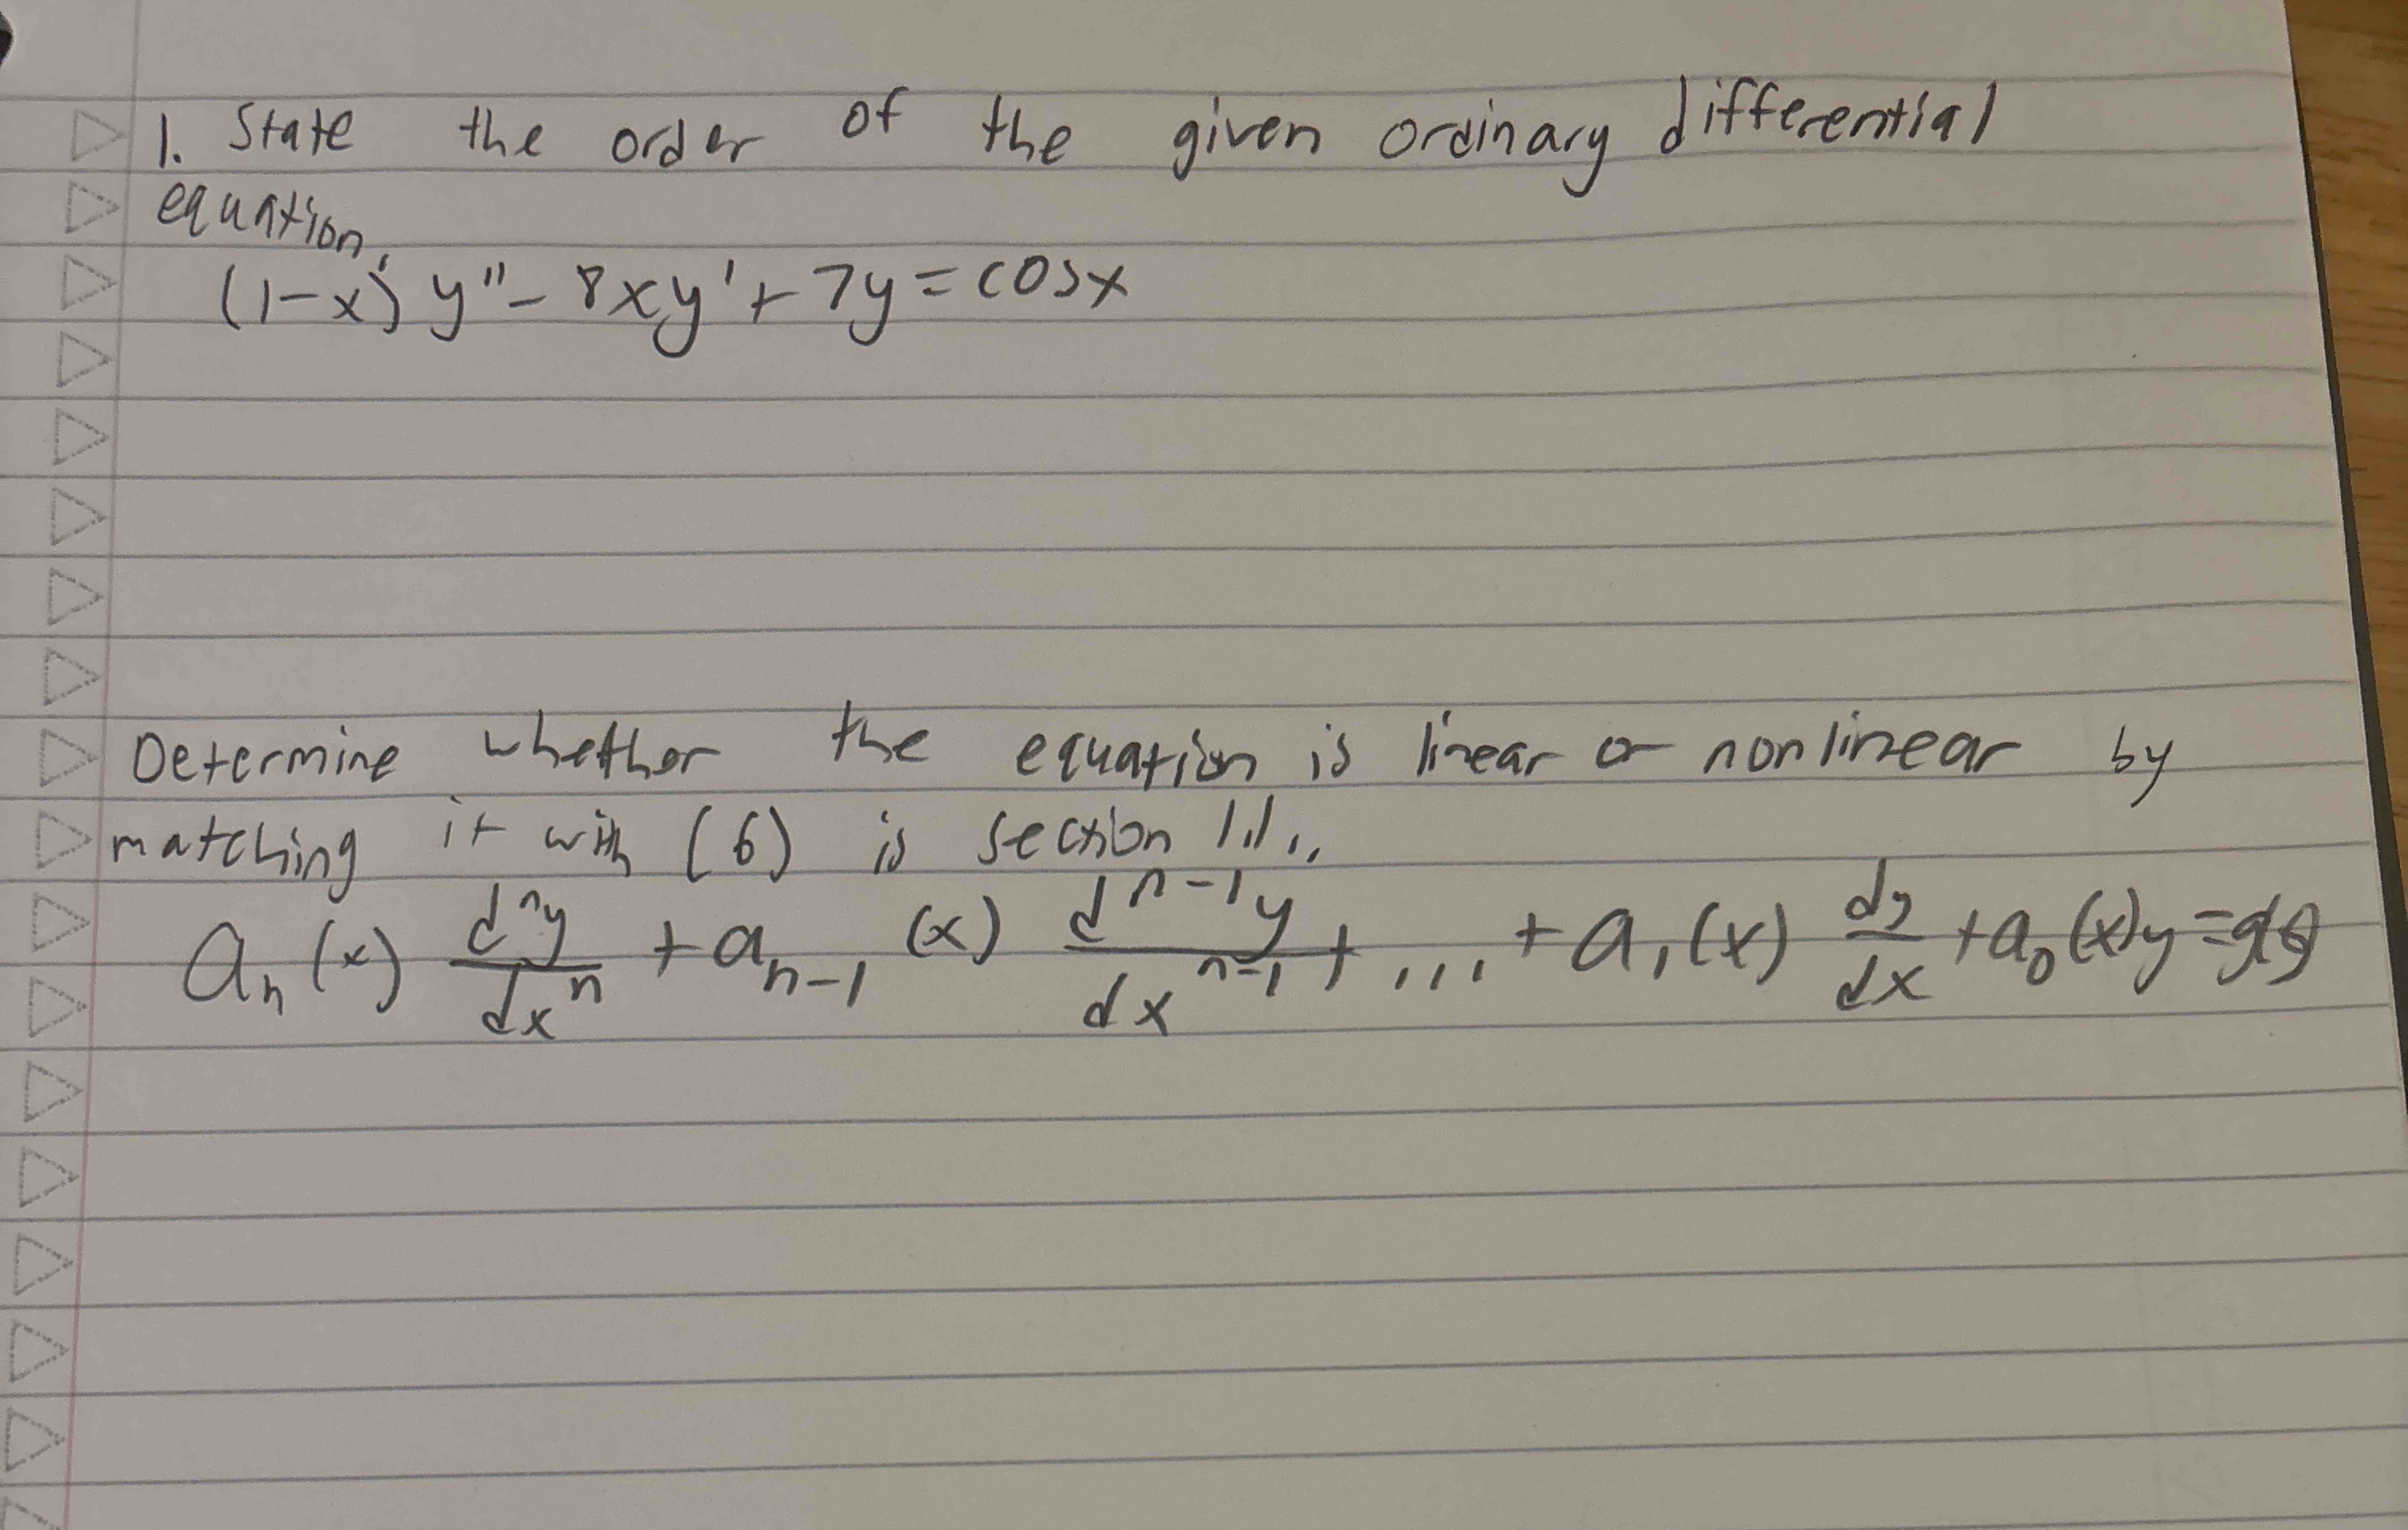 1. State the order of the given ordinary differential
equation.
(1-x) y" - 8xy' + 7y = cosx
Determine whether the equation is linear or nonlinear by
matching it with (6) is section 1.1..
aₙ(x) dⁿy/dxⁿ + aₙ₋₁(x) dⁿ⁻¹y/dxⁿ⁻¹ + ... + a₁(x) dy/dx + a₀(x)y = g(x)